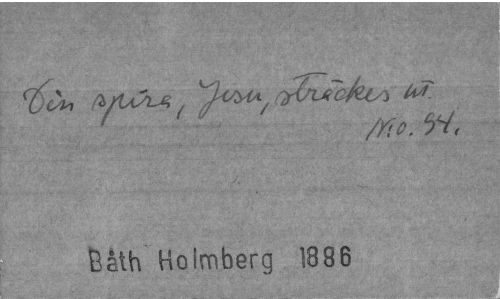 Din spira, Jesu, sträckes ut.
N:o. 94.
Båth Holmberg 1886